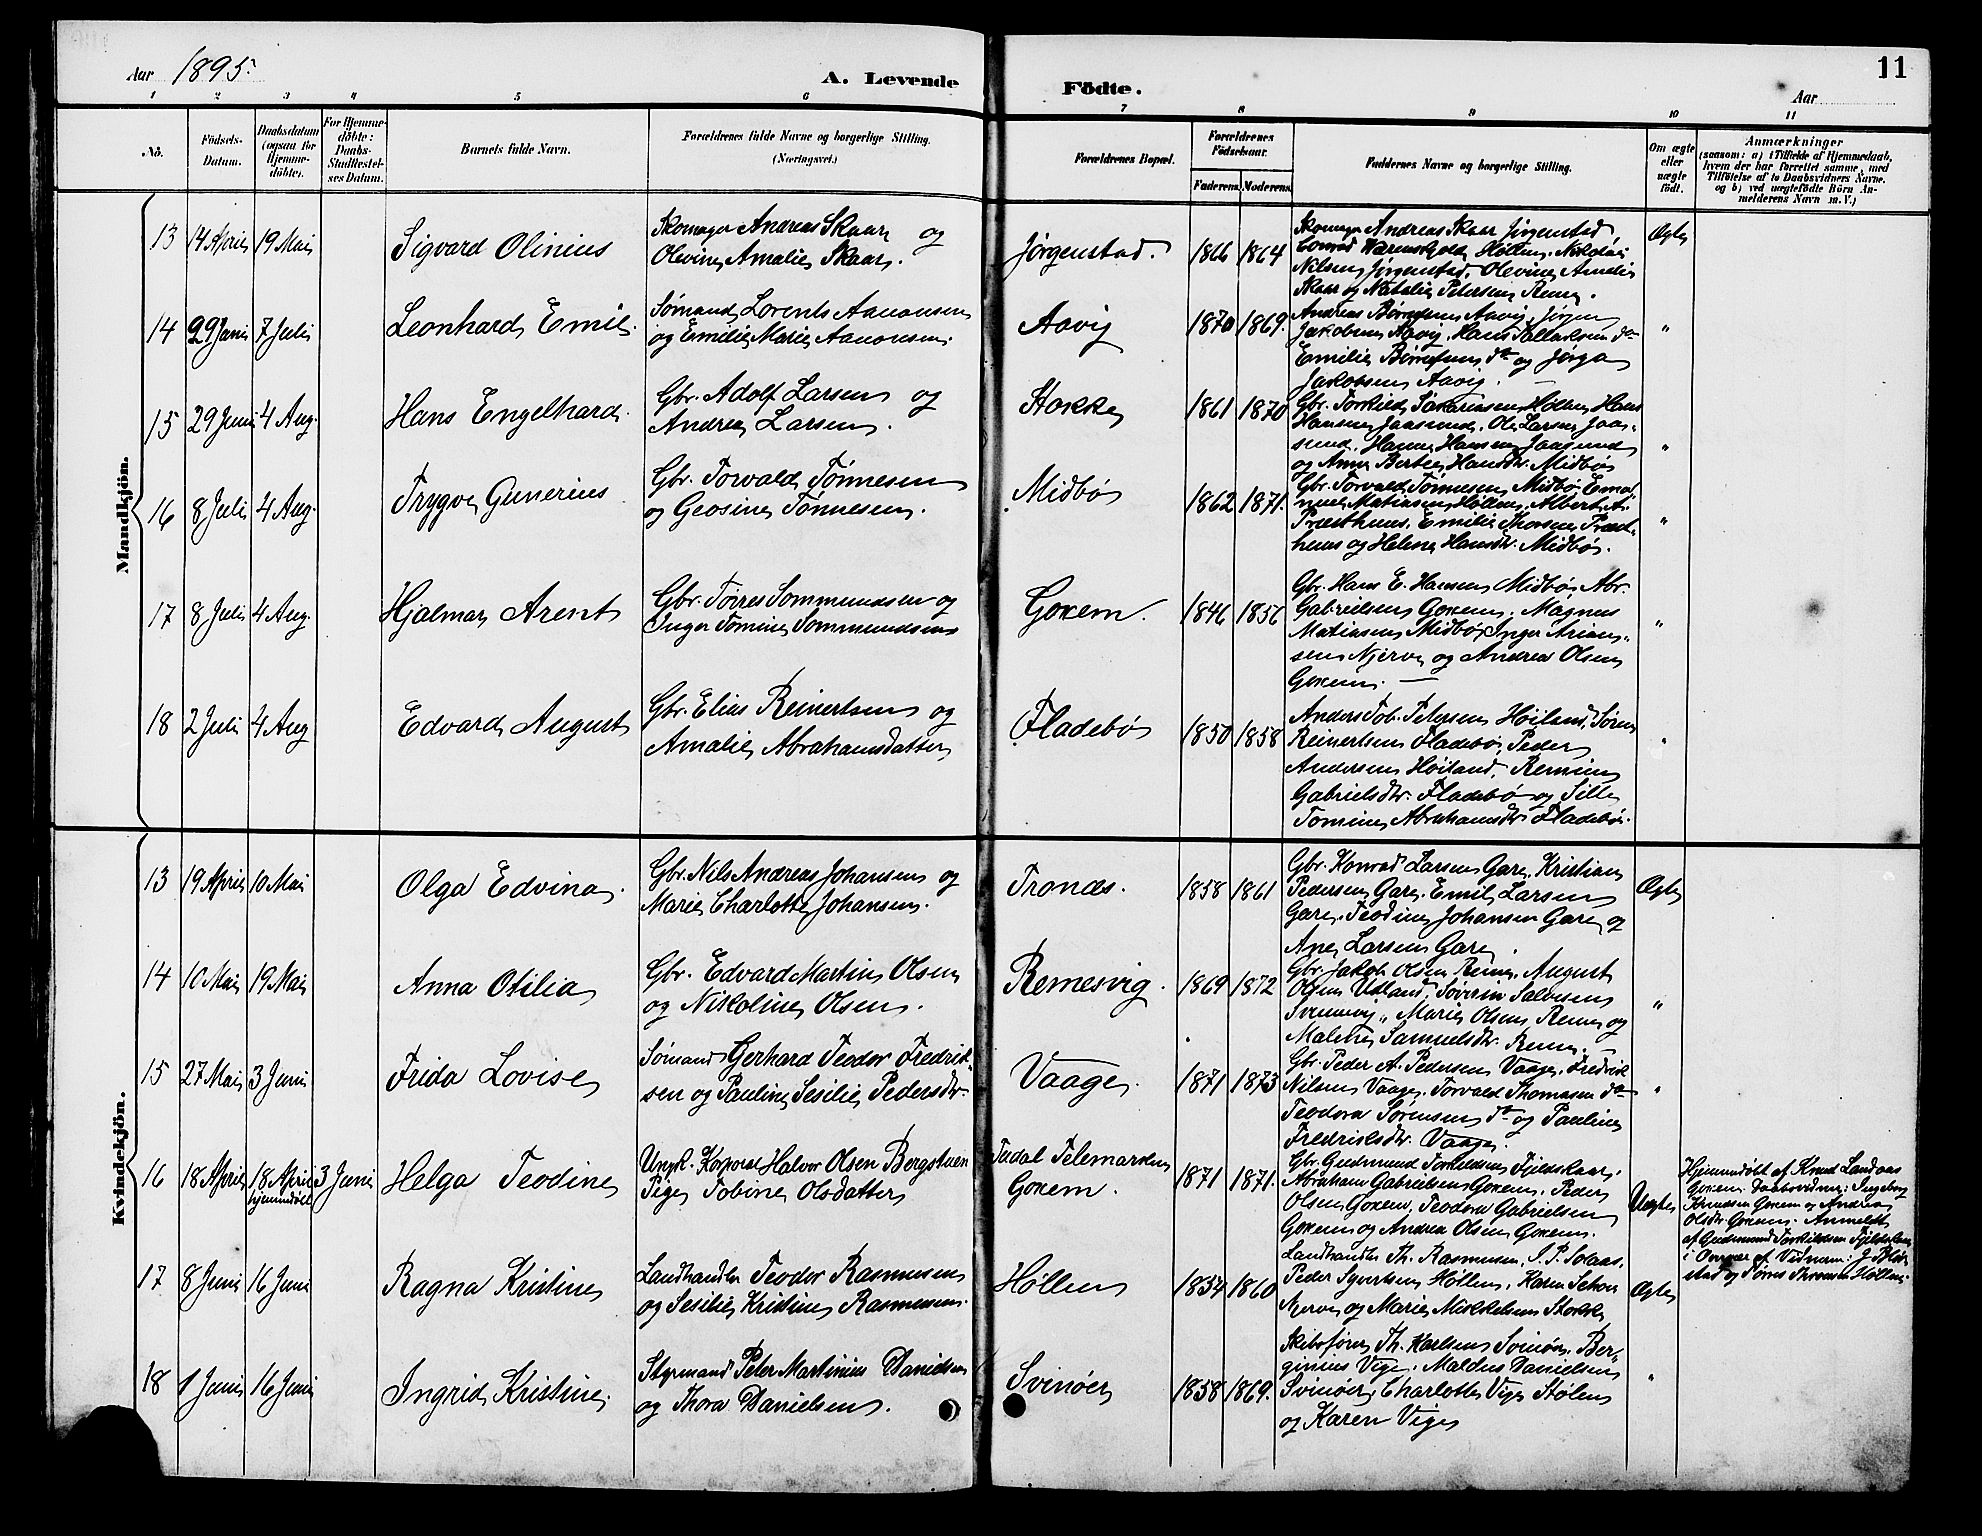 Aar 1895.
A. Levende
Fødte.
Aar
11
1 2 3 4 5 6 7 8 9 10 11
No.
Fødsels-
Datum.
Daabsdatum
(ogsaa for
Hjemme-
døbte).
For Hjemme-
døbte:
Daabs-
Stadfæstel-
ses Datum.
Barnets fulde Navn.
Forældrenes fulde Navne og borgerlige Stilling.
(Næringsvei.)
Forældrenes Bopæl.
Forældrenes
Fødselsaar.
Faderens. Moderens.
Faddernes Navne og borgerlige Stilling.
Om ægte
eller
uægte
født.
Anmærkninger
(saasom: a) i Tilfælde af Hjemmedaab,
hvem der har forrettet samme, med
Tilføielse af to Daabsvidners Navne.
og b) ved uægtefødte Børn An-
melderens Navn m.V.)
Mandkjön.
13 14 April 19 Mai
Sigvard Olinius
Skomager Andreas Skaar og
Olevine Amalie Skaar.
Jørgenstad.
1866 1864
Skomager Andreas Skaar Jørgenstad
Conrad Høllen, Nikolai
Nilsen Jørgenstad, Olevine Amalie
Skaar og Natalie Petersen Rem.
Ægte
14 29 Juni 7 Juli
Leonhard Emil.
Sømand Lorents Aanonsen
og Emilie Marie Aanonsen.
Aavig
1870 1869.
Andreas Børresen Aavig, Jørgen
Jakobsen Aavig, Hans Tallaksen do
Emilie Børresen do og Jørga
Jakobsen Aavig.
"
15 29 Juni 4 Aug.
Hans Engelhard.
Gbr. Adolf Larsen og
Andrea Larsen.
Stokke
1861 1870
Gbr. Torkild Sakariasen Høllen, Hans
Hansen Jaasund, Ole Larsen Jaa-
sund, Hanne Hansen Jaasund
og Anne Bertea Hansdtr. Midbø
"
16 8 Juli 4 Aug.
Trygve Gunerius
Gbr. Torvald Tønnesen
og Geosine Tønnesen.
Midbø
1862 1871.
Gbr. Torvald Tønnesen Midbø, Ema-
nuel Matiasen Høllen, Albert A.
Præsthuus, Emilie Thorsen Præst-
huus og Helene Hansdtr. Midbø.
"
17 8 Juli 4 Aug.
Hjalmar Arent
Gbr. Tørres Sommundsen og
Inger Tomine Sommundsen
Goxem.
1846 1856
Gbr. Hans E. Hansen Midbø, Abr.
Gabrielsen Goxem, Magnus
Matiasen Midbø, Inger Arian-
sen Njerve og Andrea Olsen
Goxem.
"
18 2 Juli 4 Aug
Edvard August
Gbr. Elias Reinertsen og
Amalie Abrahamsdatter
Fladebø
1850 1858
Anders Tob. Petersen Høiland, Søren
Reinertsen Fladebø, Peder
Andersen Høiland,
Gabrielsdtr. Fladebø og Sille
Tomine Abrahamsdtr Fladebø.
"
Kvindekjön.
13 19 April 10 Mai
Olga Edvina.
Gbr. Nils Andreas Johansen og
Marie Charlotte Johansen.
Tronæs.
1858 1861
Gbr. Konrad Larsen Gare, Kristian
Pedersen Gare, Emil Larsen
Gare, Teodine Johansen Gare og
Ane Larsen Gare.
Ægte
14 10 Mai 19 Mai
Anna Otilia
Gbr. Edvard Martin Olsen
og Nikoline Olsen.
Remesvig.
1869 1872
Gbr. Jakob Olsen Reme, August
Olsen Udland, Søverin Salvesen
Svennevig, Marie Olsen Reme og
Malene Samuelsdtr. Reme.
"
15 27 Mai 3 Juni
Frida Lovise
Sømand Gerhard Teodor Fredrik-
sen og Pauline Sesilie Pedersdtr.
Vaage.
1871 1873
Gbr. Peder A. Pedersen Vaage, Fredrik
Nilsen Vaage, Torvald Thomasen do
Teodora Sørensen do og Pauline
Fredriksdtr. Vaage.
"
16 18 April 18 April 3 Juni
hjemmedøbt
Helga Teodine
Ungk. Korporal Halvor Olsen Bergstuen
Pige Tobine Olsdatter
Tudal Telemarken
Goxem.
1871 1871.
Gbr. Gudmund Torkildsen Fjeldskaar,
Abraham Gabrielsen Goxem, Peder
Olsen Goxem, Teodora Gabrielsen
Goxem og Andrea Olsen Goxem.
Uægte
Hjemmedøbt af Knud Landaas
Goxem. Daabsvidner: Ingeborg
Knudsen Goxem og Andrea
Olsdtr. Goxem. Anmeldt
af Gudmund Torkildsen Fjeldskaar
i Overvær af Vidnerne:
stad og Tønnes Høllen.
17 8 Juni 16 Juni
Ragna Kristine
Landhandler Teodor Rasmussen
og Sesilie Kristine Rasmussen.
Høllen
1854 1860
Landhandler Th. Rasmussen, I. P. Solaas,
Peder Syvertsen Høllen, Karen
Njerve og Marie Mikkelsen Stokke
Ægte
18 1 Juni 16 Juni
Ingrid Kristine.
Styrmand Peter Martinius Danielsen
og Thora Danielsen.
Svinøer
1858 1869.
Skibsfører Th. Karlsen Svinøer, Ber-
ginius Vige, Maldus Danielsen
Svinøer, Charlotte Vige Stølen
og Karen Vige
"